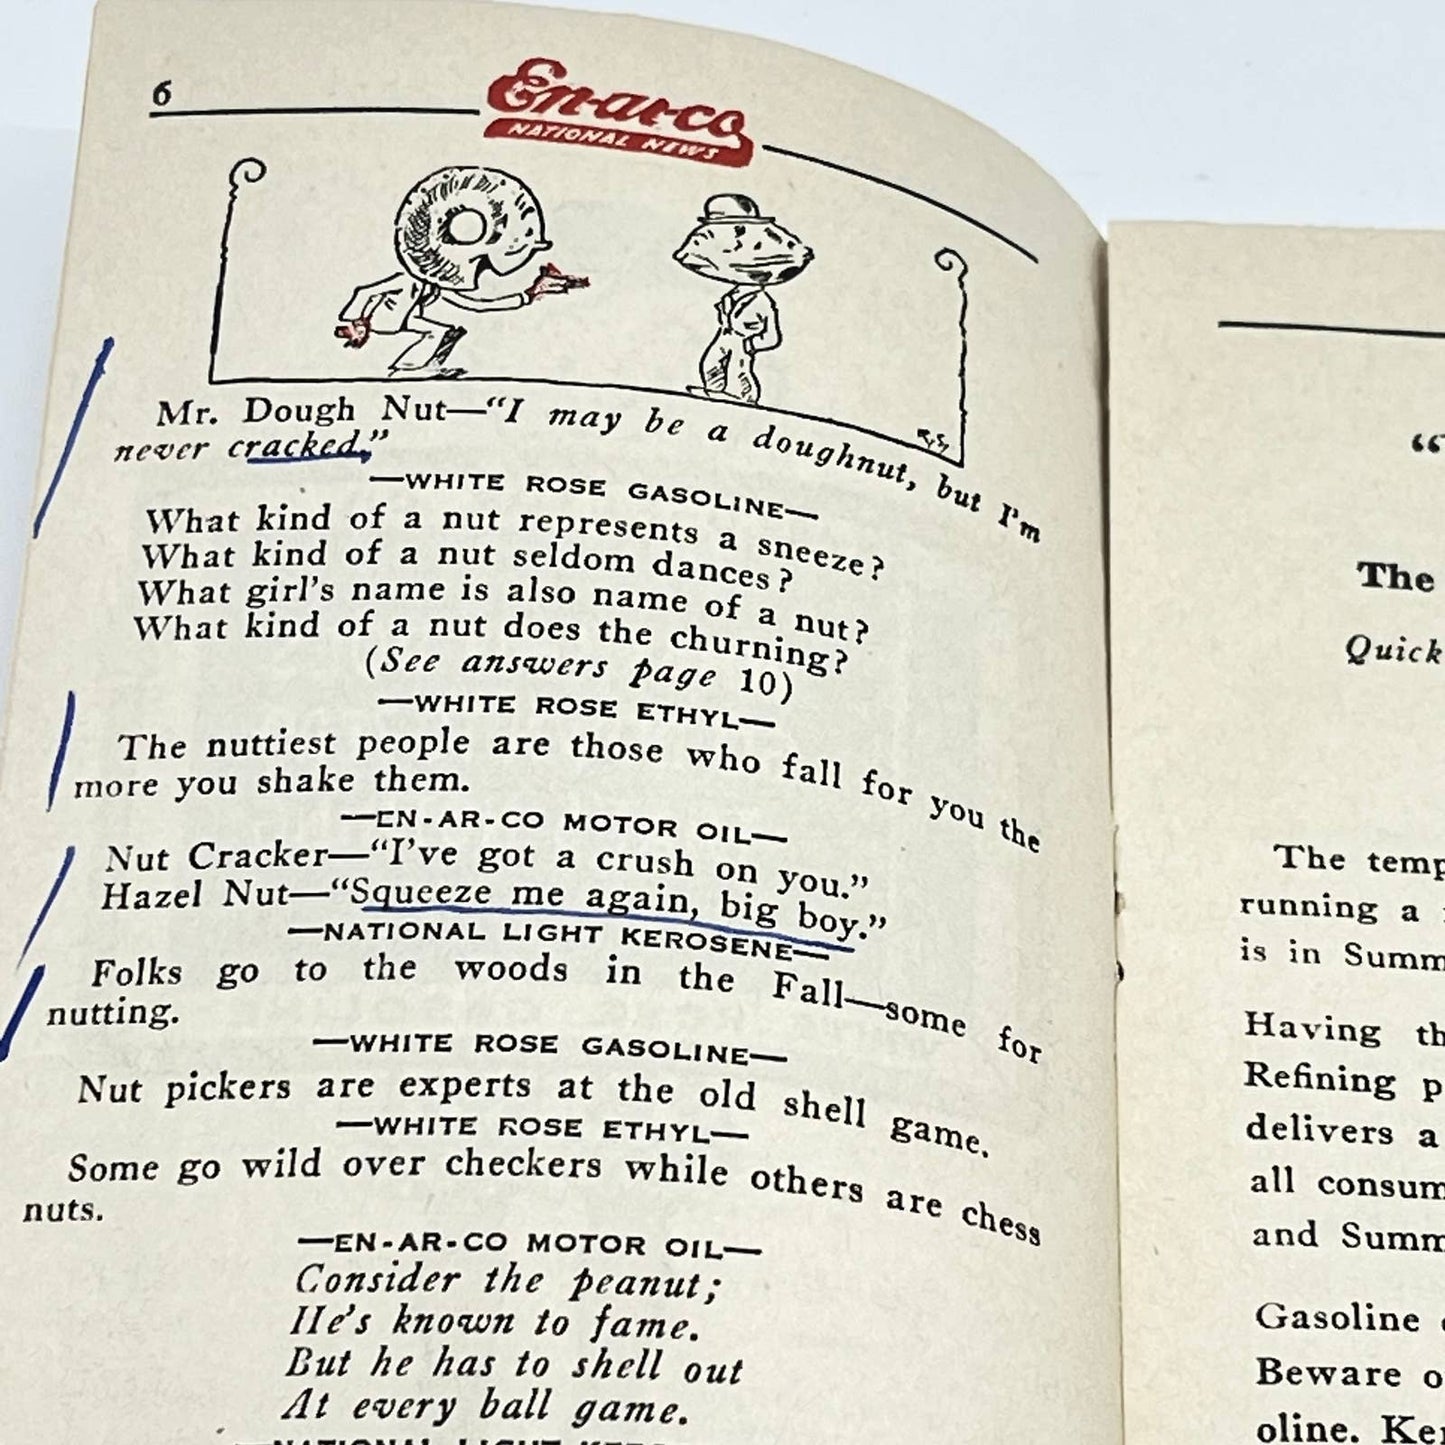 6
En-ar-co
NATIONAL NEWS
Mr. Dough Nut—“I may be a doughnut, but I'm
never cracked.”
—WHITE ROSE GASOLINE—
What kind of a nut represents a sneeze?
What kind of a nut seldom dances?
What girl's name is also name of a nut?
What kind of a nut does the churning?
(See answers page 10)
—WHITE ROSE ETHYL—
The nuttiest people are those who fall for you the
more you shake them.
—EN-AR-CO MOTOR OIL—
Nut Cracker—“I've got a crush on you.”
Hazel Nut—“Squeeze me again, big boy.”
—NATIONAL LIGHT KEROSENE—
Folks go to the woods in the Fall—some for
nutting.
—WHITE ROSE GASOLINE—
Nut pickers are experts at the old shell game.
—WHITE ROSE ETHYL—
Some go wild over checkers while others are chess
nuts.
—EN-AR-CO MOTOR OIL—
Consider the peanut;
He's known to fame.
But he has to shell out
At every ball game.
“
The
Quick
The temp
running a
is in Summ
Having th
Refining p
delivers a
all consum
and Summ
Gasoline
Beware o
oline. Ker